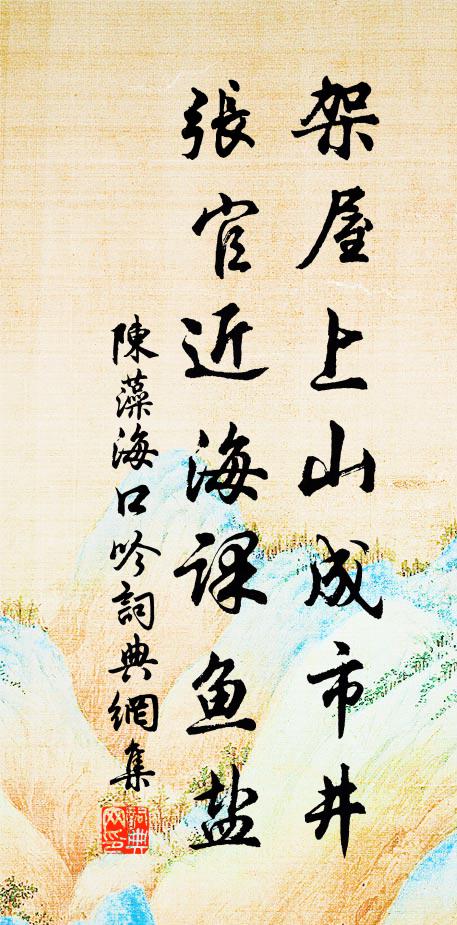 架屋上山成市井
張官近海課鱼盐
陳藻海口吟詞典網集
詞典
网印